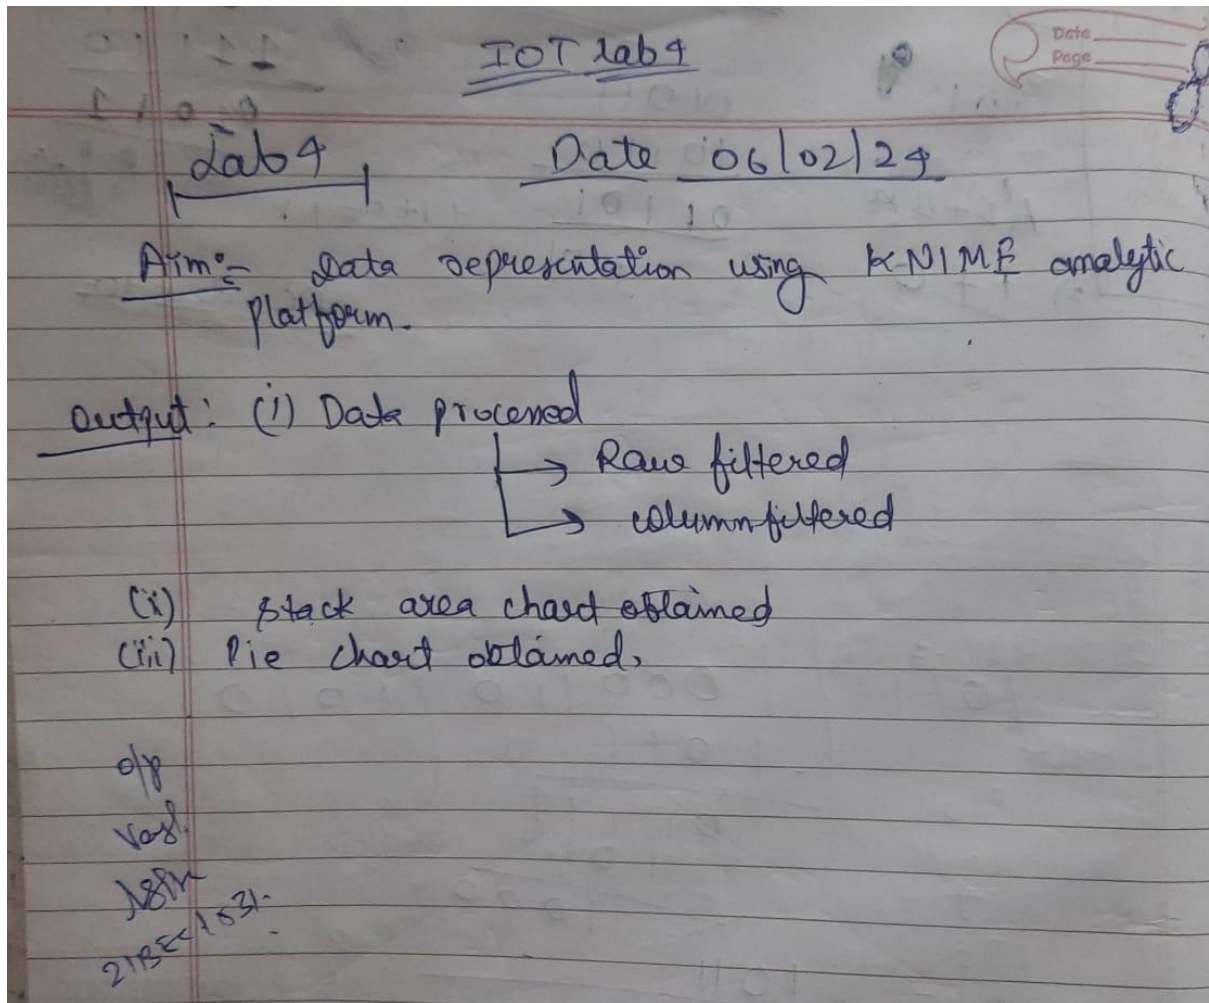 IOT Lab 4
Date
Page
Lab 4 Date 06/02/24
Aim:- Data representation using KNIME analytic
platform.
Output: (i) Data processed
→ Raw filtered
→ column filtered
(ii) Stack area chart obtained
(iii) Pie chart obtained.
o/p